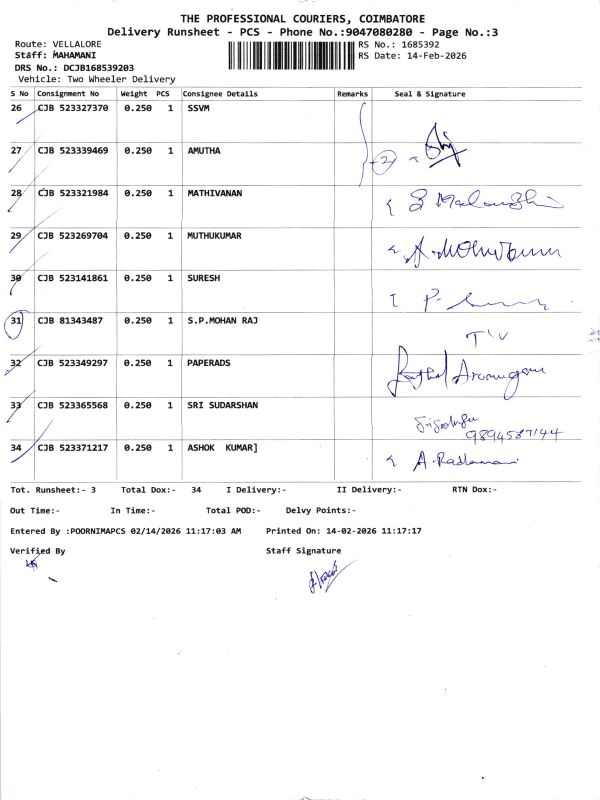 THE PROFESSIONAL COURIERS, COIMBATORE
Delivery Runsheet - PCS - Phone No.:9047080280 - Page No.:3
Route: VELLALORE RS No.: 1685392
Staff: MAHAMANI RS Date: 14-Feb-2026
DRS No.: DCJB168539203
Vehicle: Two Wheeler Delivery
S No Consignment No Weight PCS Consignee Details Remarks Seal & Signature
26 CJB 523327370 0.250 1 SSVM
27 CJB 523339469 0.250 1 AMUTHA 2
28 CJB 523321984 0.250 1 MATHIVANAN
29 CJB 523269704 0.250 1 MUTHUKUMAR
30 CJB 523141861 0.250 1 SURESH
31 CJB 81343487 0.250 1 S.P.MOHAN RAJ
32 CJB 523349297 0.250 1 PAPERADS Arumugam
33 CJB 523365568 0.250 1 SRI SUDARSHAN
9894587144
34 CJB 523371217 0.250 1 ASHOK KUMAR]
Tot. Runsheet:- 3 Total Dox:- 34 I Delivery:- II Delivery:- RTN Dox:-
Out Time:- In Time:- Total POD:- Delvy Points:-
Entered By :POORNIMAPCS 02/14/2026 11:17:03 AM Printed On: 14-02-2026 11:17:17
Verified By Staff Signature